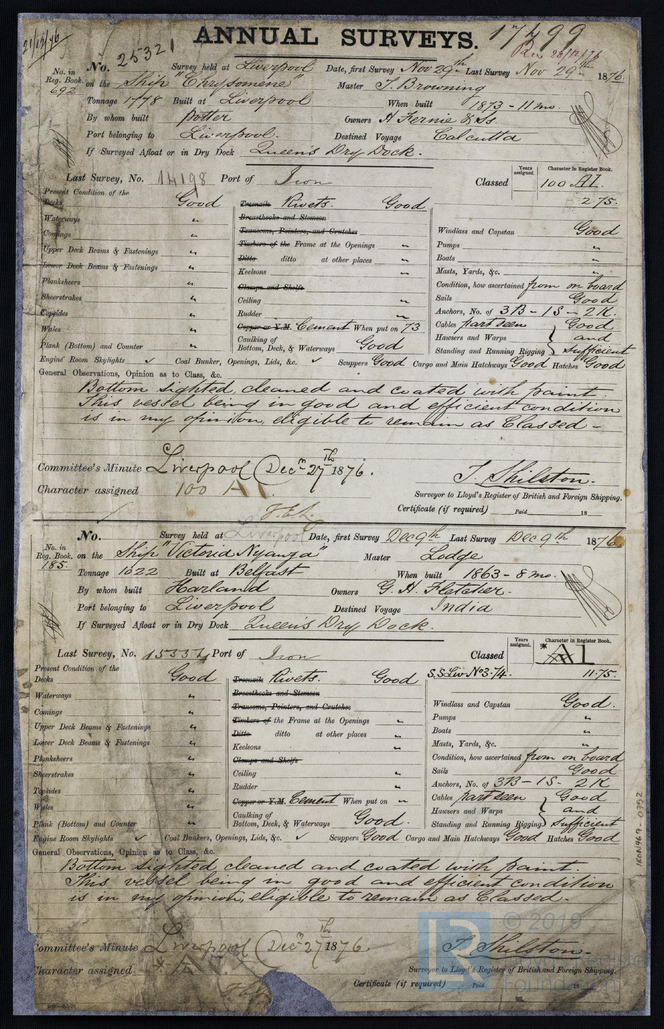 21/12/76
ANNUAL SURVEYS. 17499
No. 25321 Survey held at Liverpool Date, first Survey Nov 29th Last Survey Nov 29th 1876
No. in Reg. Book. 692 on the Ship "Chrysomene" Master T. Browning
Tonnage 1778 Built at Liverpool When built 1873 - 11 mo.
By whom built Potter Owners H Fernie & Ss
Port belonging to Liverpool. Destined Voyage Calcutta
If Surveyed Afloat or in Dry Dock Queen's Dry Dock.
Last Survey, No. 14198 Port of Iron Classed Years assigned. Character in Register Book. 100 A1.
2 75.
Present Condition of the Decks Good Treenails Rivets. Good
Waterways " Breasthooks and Stemson Windlass and Capstan Good
Comings " Transoms, Pointers, and Crutches Pumps "
Upper Deck Beams & Fastenings " Timbers of the Frame at the Openings " Boats "
Lower Deck Beams & Fastenings " Ditto ditto at other places " Masts, Yards, &c. "
Planksheers " Keelsons " Condition, how ascertained from on board
Sheerstrakes " Clamps and Shelfs Sails Good
Topsides " Ceiling " Anchors, No. of 3B - 1S - 2K.
Wales " Rudder " Cables part seen Good
Plank (Bottom) and Counter " Copper or Y.M. Cement When put on 73 Hawsers and Warps and
Caulking of Bottom, Deck, & Waterways Good Standing and Running Rigging sufficient
Engine Room Skylights ✓ Coal Bunker, Openings, Lids, &c. ✓ Scuppers Good Cargo and Main Hatchways Good Hatches Good
General Observations, Opinion as to Class, &c.
Bottom sighted, cleaned and coated with paint
This vessel being in good and efficient condition
is in my opinion, eligible to remain as Classed -
Committee's Minute Liverpool Decr 27th 1876.
Character assigned 100 A1. T. Skilston.
Surveyor to Lloyd's Register of British and Foreign Shipping.
Certificate (if required) Paid 18
No. Survey held at Liverpool Date, first Survey Dec 9th Last Survey Dec 9th 1876
No. in Reg. Book. 185. on the Ship "Victoria Nyanza" Master Lodge
Tonnage 1022 Built at Belfast When built 1863 - 8 mo.
By whom built Harland Owners G. H. Fletcher.
Port belonging to Liverpool Destined Voyage India
If Surveyed Afloat or in Dry Dock Queen's Dry Dock.
Last Survey, No. Port of Iron Classed Years assigned. Character in Register Book. A1
S.S. Liv No 3. 74. 11.75
Present Condition of the Decks Good Treenails Rivets. Good
Waterways " Breasthooks and Stemson Windlass and Capstan Good.
Comings " Transoms, Pointers, and Crutches Pumps "
Upper Deck Beams & Fastenings " Timbers of the Frame at the Openings " Boats "
Lower Deck Beams & Fastenings " Ditto ditto at other places " Masts, Yards, &c. "
Planksheers " Keelsons " Condition, how ascertained from on board
Sheerstrakes " Clamps and Shelfs Sails Good
Topsides " Ceiling " Anchors, No. of 3B - 1S - 2K
Wales " Rudder " Cables part seen Good
Plank (Bottom) and Counter " Copper or Y.M. Cement When put on " Hawsers and Warps and
Caulking of Bottom, Deck, & Waterways Good. Standing and Running Rigging sufficient
Engine Room Skylights ✓ Coal Bunkers, Openings, Lids, &c. ✓ Scuppers Good Cargo and Main Hatchways Good Hatches Good
General Observations, Opinion as to Class, &c.
Bottom sighted, cleaned and coated with paint.
This vessel being in good and efficient condition
is in my opinion, eligible to remain as Classed.
Committee's Minute Liverpool Decr 27th 1876.
Character assigned A1 T. Skilston.
Surveyor to Lloyd's Register of British and Foreign Shipping.
Certificate (if required) Paid 18
© 2019
Lloyd's Register
Foundation